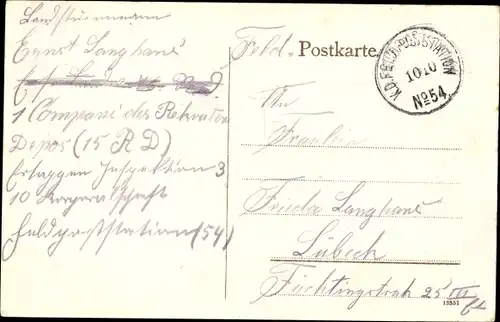 Landsturmmann
Ernst Langhans
1 Compani des Rekruten
Depos (15 R D)
Etappen Inspektion 3
10 Korporalschaft
Feldpoststation (54)
Feld-Postkarte
K.D.FELD-POSTSTATION
10 10
No 54
An
Fraulein
Frieda Langhans
Lübeck
Füchtingstrah 25 III
13551